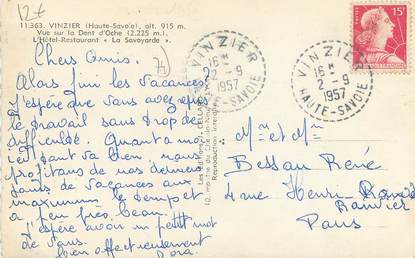 12€
11.363. VINZIER (Haute-Savoie), alt. 915 m.
Vue sur la Dent d'Oche (2.225 m.)
L'Hôtel-Restaurant « La Savoyarde »
Chers Amis.
Alors fini les vacances?
J'espère que vous avez repris
le travail sans trop de
difficulté. Quant a moi
c'est tout va bien, nous
profitons de nos derniers
jours de vacances aux
maximum le temps et
a peu près beau.
J'espère avoir un petit mot
de vous.
bien affectueusement
Dora.
VINZIER
16 H
2 - 9
1957
HAUTE-SAVOIE
VINZIER
16 H
2 - 9
1957
HAUTE-SAVOIE
15F
Mr et Mme
Bessan René
4 rue Henri
Ranvier
Paris
Reproduction interdite